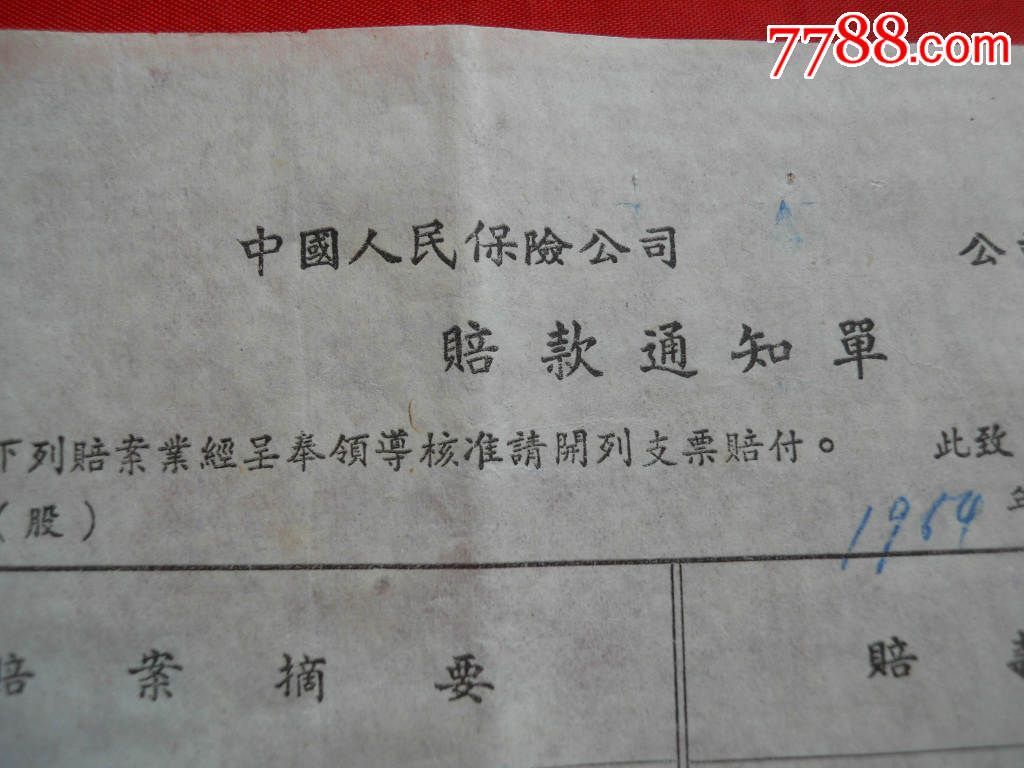 7788.com
中國人民保險公司 公司
賠款通知單
下列賠案業經呈奉領導核准請開列支票賠付。 此致
（股） 1954 年
賠案摘要 賠款